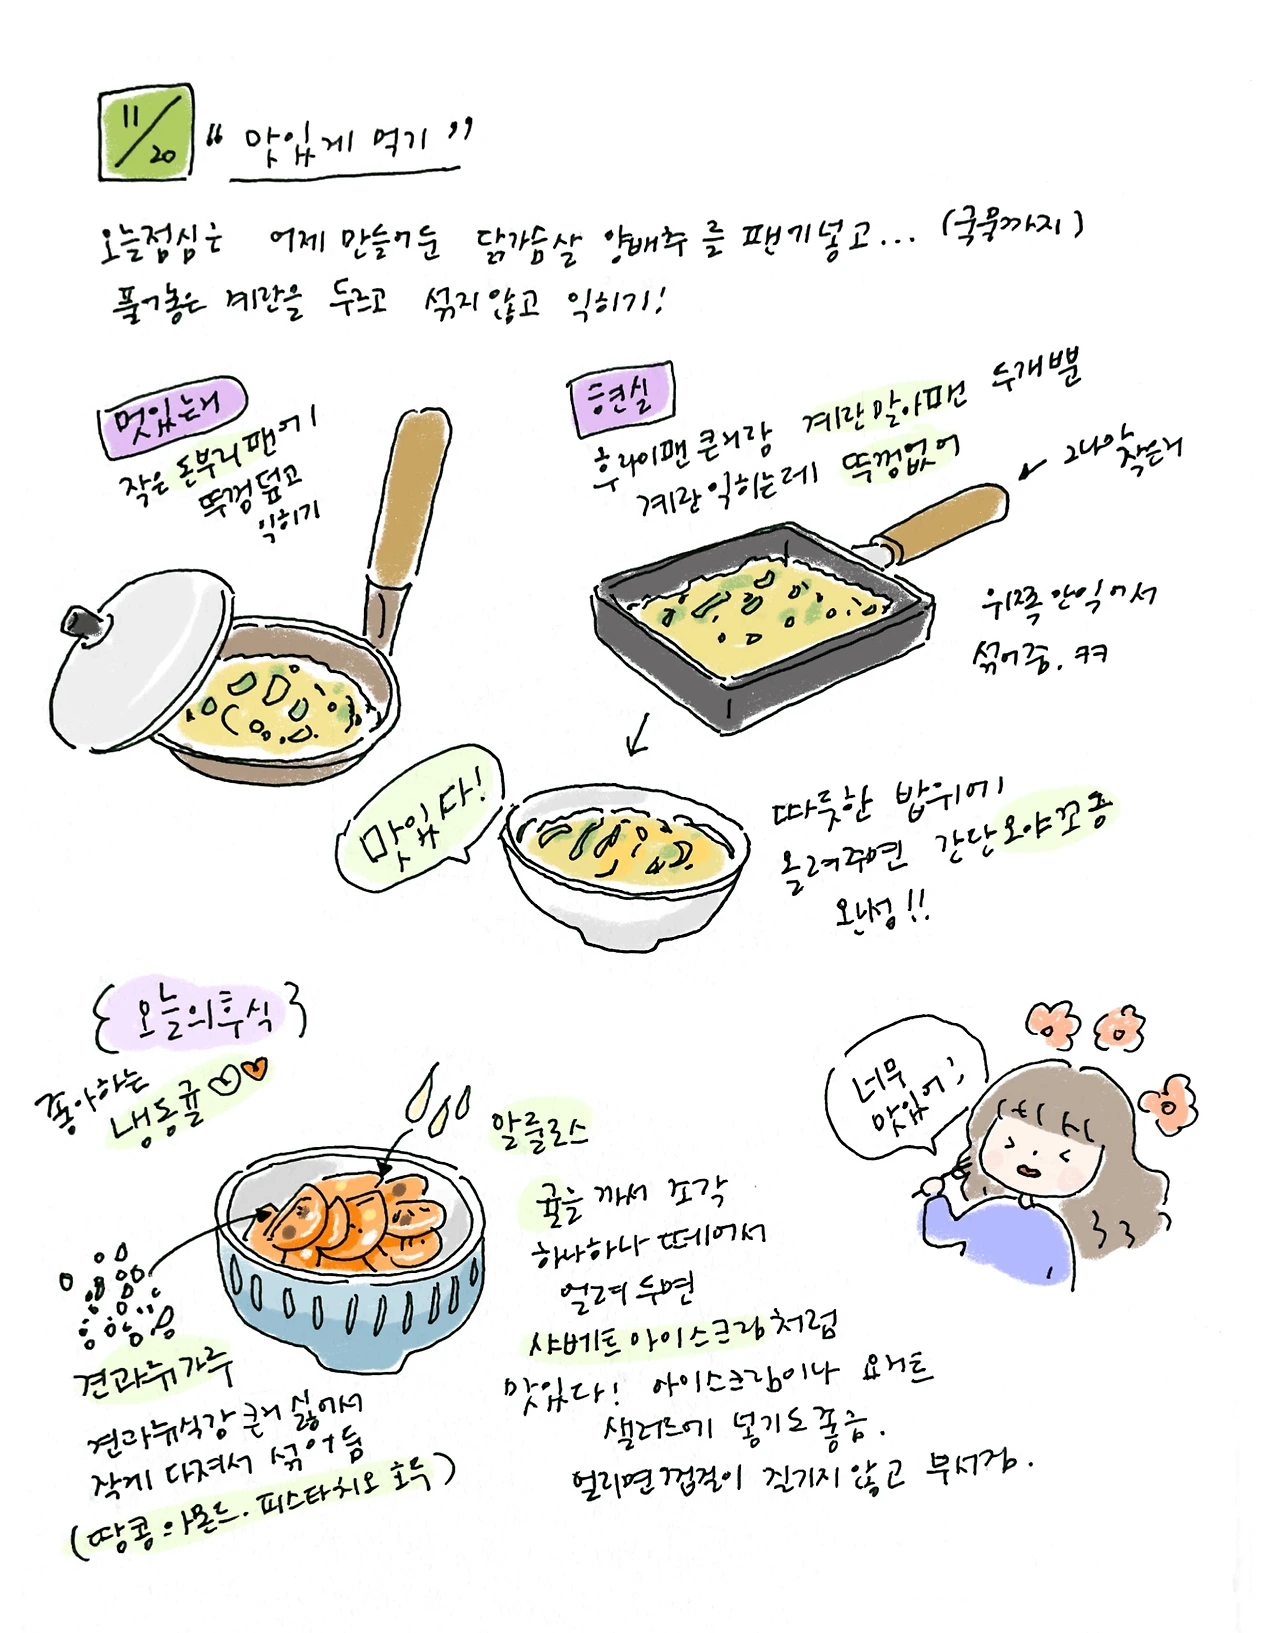 11/20 “맛있게 먹기”
오늘점심은 어제 만들어둔 닭가슴살 양배추를 팬에넣고... (국물까지)
풀어놓은 계란을 두르고 섞지않고 익히기!
멋있는거
작은 돈부리팬에
뚜껑덮고
익히기
현실
후라이팬 큰거랑 계란말아팬 두개뿐
계란익히는데 뚜껑없어
그나마
작은거
위쪽 안익어서
섞어줌. ㅋㅋ
맛있다!
따뜻한 밥위에
올려주면 간단오야꼬동
완성!!
{오늘의후식}
좋아하는
냉동귤
알룰로스
귤을 까서 조각
하나하나 떼어서
얼려두면
샤베트아이스크림처럼
맛있다! 아이스크림이나 요거트
샐러드에 넣기도좋음.
얼리면껍질이 질기지않고 부서짐.
너무
맛있어!
견과류가루
견과류식감 큰거 싫어서
작게 다져서 섞어둠
(땅콩 아몬드. 피스타치오 호두)